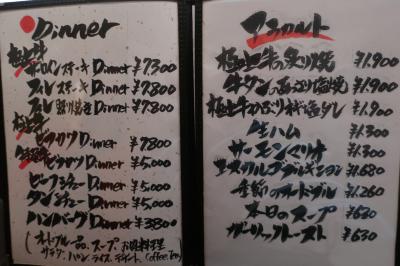 Dinner
サーロインステーキ Dinner ¥7300
フィレステーキ Dinner ¥7800
フィレ 照り焼き Dinner ¥7800
ビフカツ Dinner ¥7800
ビフカツ Dinner ¥5,000
ビーフシチュー Dinner ¥5,000
タンシチュー Dinner ¥5,000
ハンバーグ Dinner ¥3800
(オードブル一品、スープ、お魚料理
サラダ、パン、ライス、デザート、Coffee, Tea)
アラカルト
極上牛の炙り焼 ¥1,900
牛タンのあぶり塩焼 ¥1,900
極上牛 ¥1,900
生ハム ¥1,300
サーモンマリネ ¥1,300
エスカルゴブルギニョン ¥1,680
季節のオードブル ¥1,260
本日のスープ ¥630
ガーリックトースト ¥630